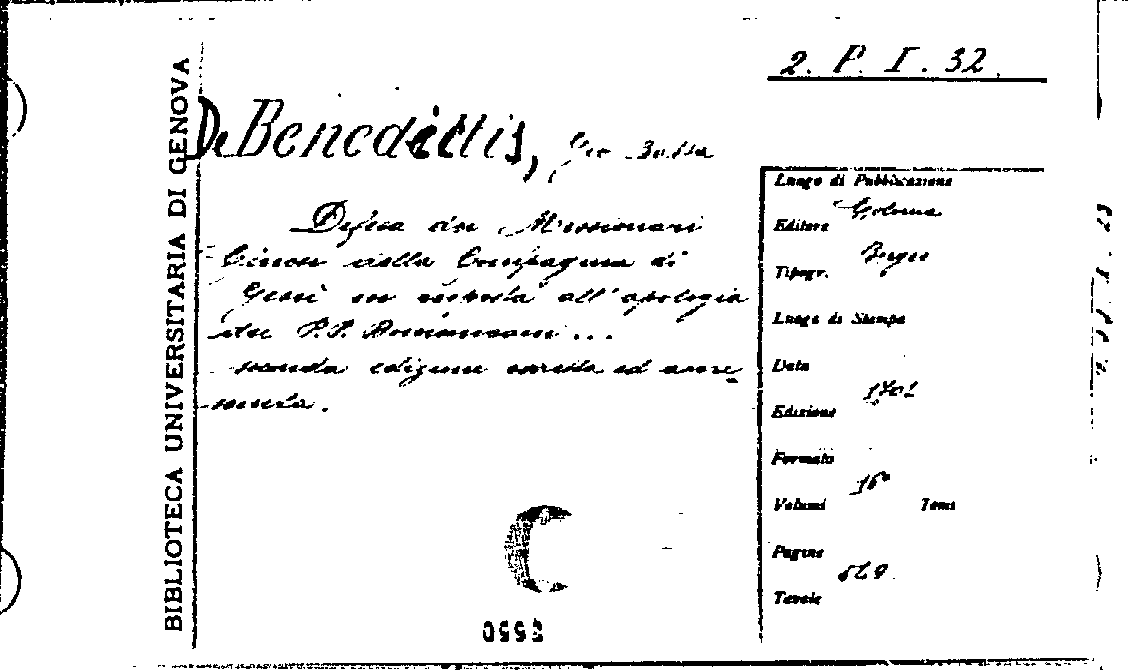 2. P. I. 32.
BIBLIOTECA UNIVERSITARIA DI GENOVA
De Benedictis, Gio Batta
Difesa dei Missionari
Cinesi della Compagnia di
Gesù in risposta all'apologia
dei P.P. Domenicani ...
seconda edizione corretta ed accre-
sciuta.
Luogo di Pubblicazione
Colonia
Editore
Tipogr.
Luogo di Stampa
Data
1701
Edizione
Formato
16°
Volumi Tomi
Pagine
Tavole
C